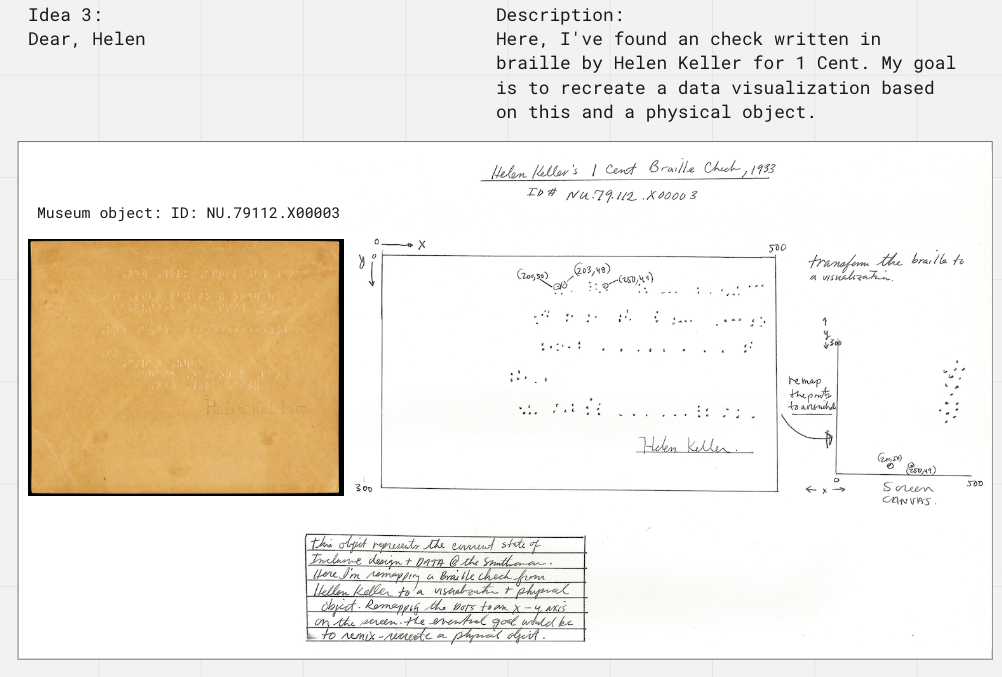 Idea 3:
Dear, Helen
Description:
Here, I've found an check written in
braille by Helen Keller for 1 Cent. My goal
is to recreate a data visualization based
on this and a physical object.
Helen Keller's 1 Cent Braille Check, 1933
ID# NU.79.112.X00003
Museum object: ID: NU.79112.X00003
Helen Keller
0 X
500
y 0
(200,50) (203,48) (250,49)
300
Helen Keller.
transform the braille to
a visualization.
y
300
remap
the dots
to
(200,50)
(250,49)
0
500
x
Screen
CANVAS.
This object represents the current state of
Inclusive design + DATA @ the Smithsonian.
Here I'm remapping a Braille check from
Hellen Keller to a visualization + physical
object. Remapping the dots to an x-y axis
on the screen. the eventual goal would be
to remix-recreate a physical object.